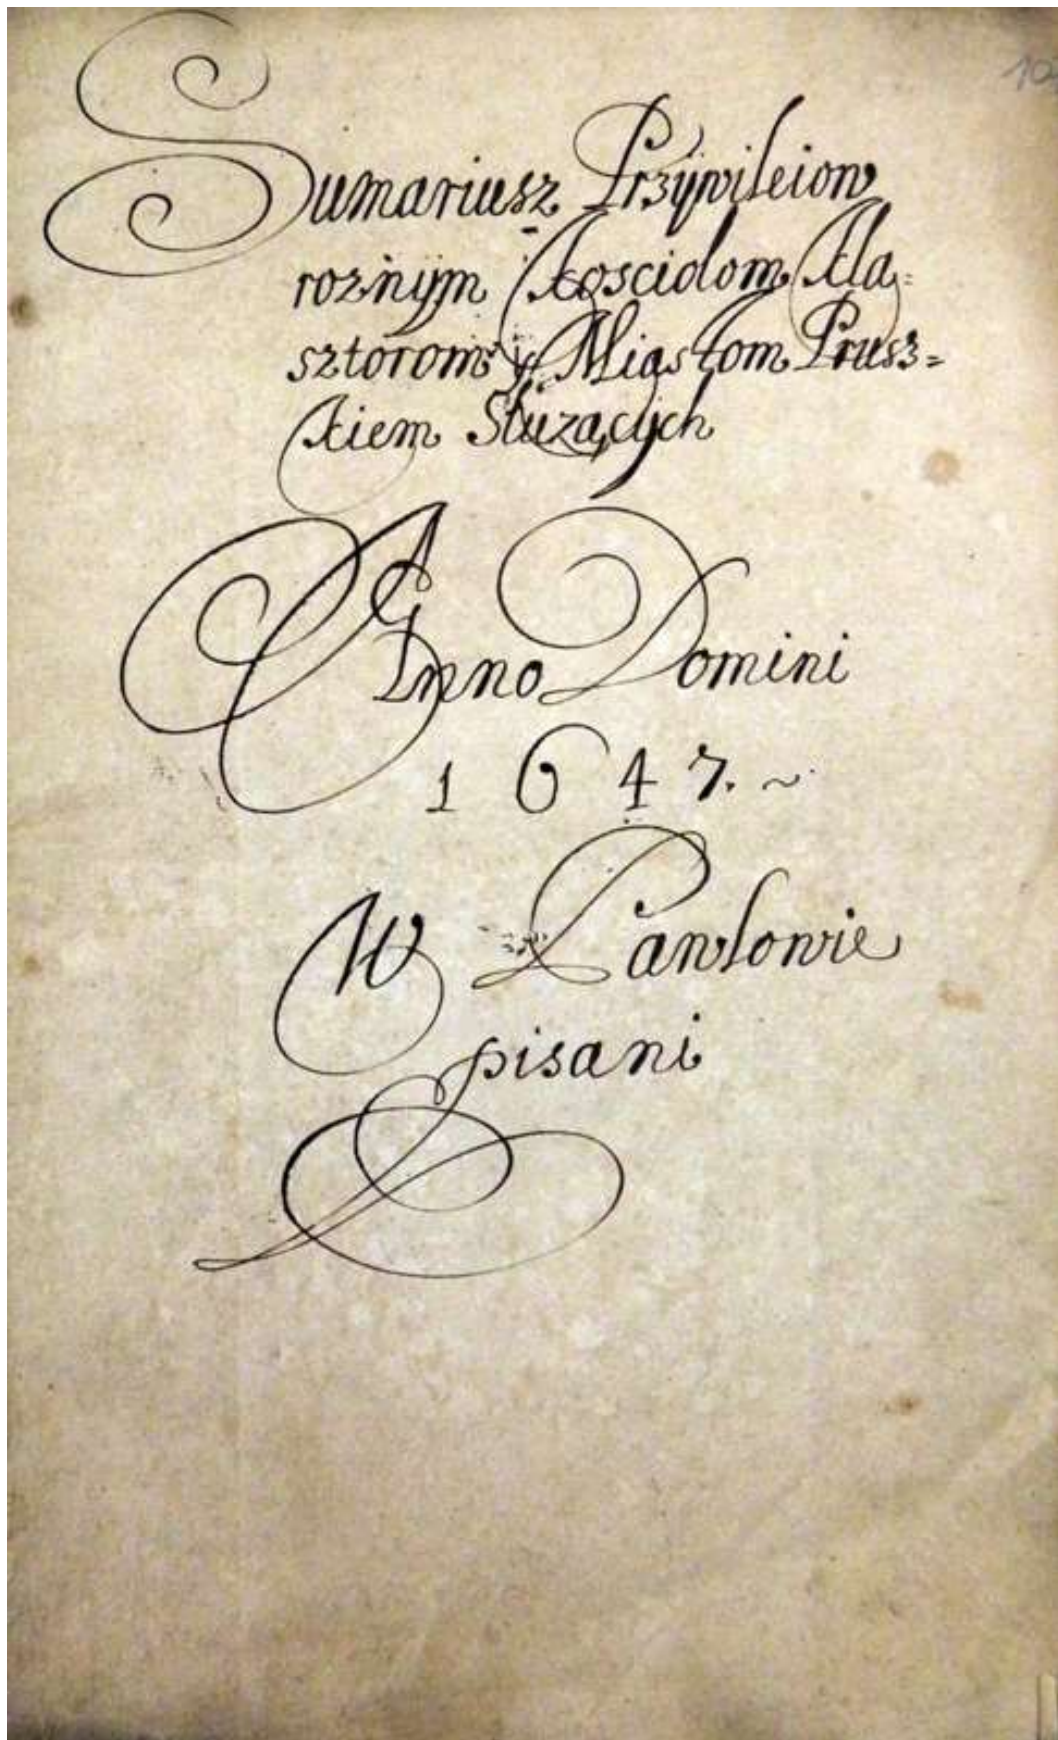 Sumariusz Przÿwileiow
roznÿm Kosciolom Kla=
sztorom y Miastom Prusz=
kiem Służącÿch
Anno Domini
1647.~
W Pawlowie
pisani